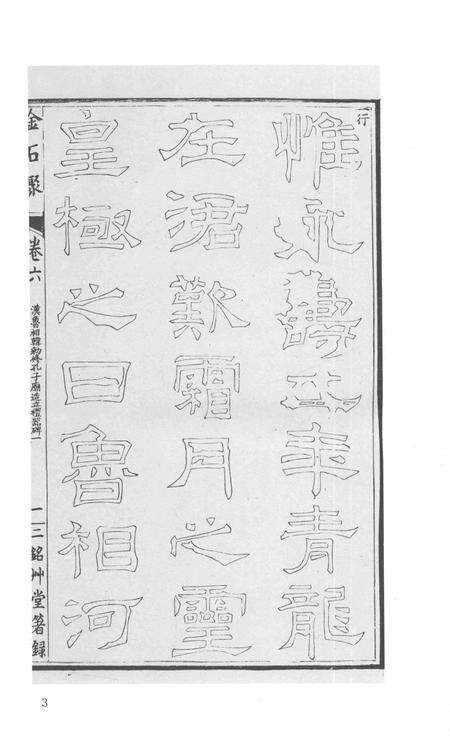 一行
惟永壽二年青龍
在涒歎霜月之靈
皇極之日魯相河
金石聚 卷六 漢魯相韓勅修孔子廟造立禮器碑一 一 二銘艸堂箸録
3